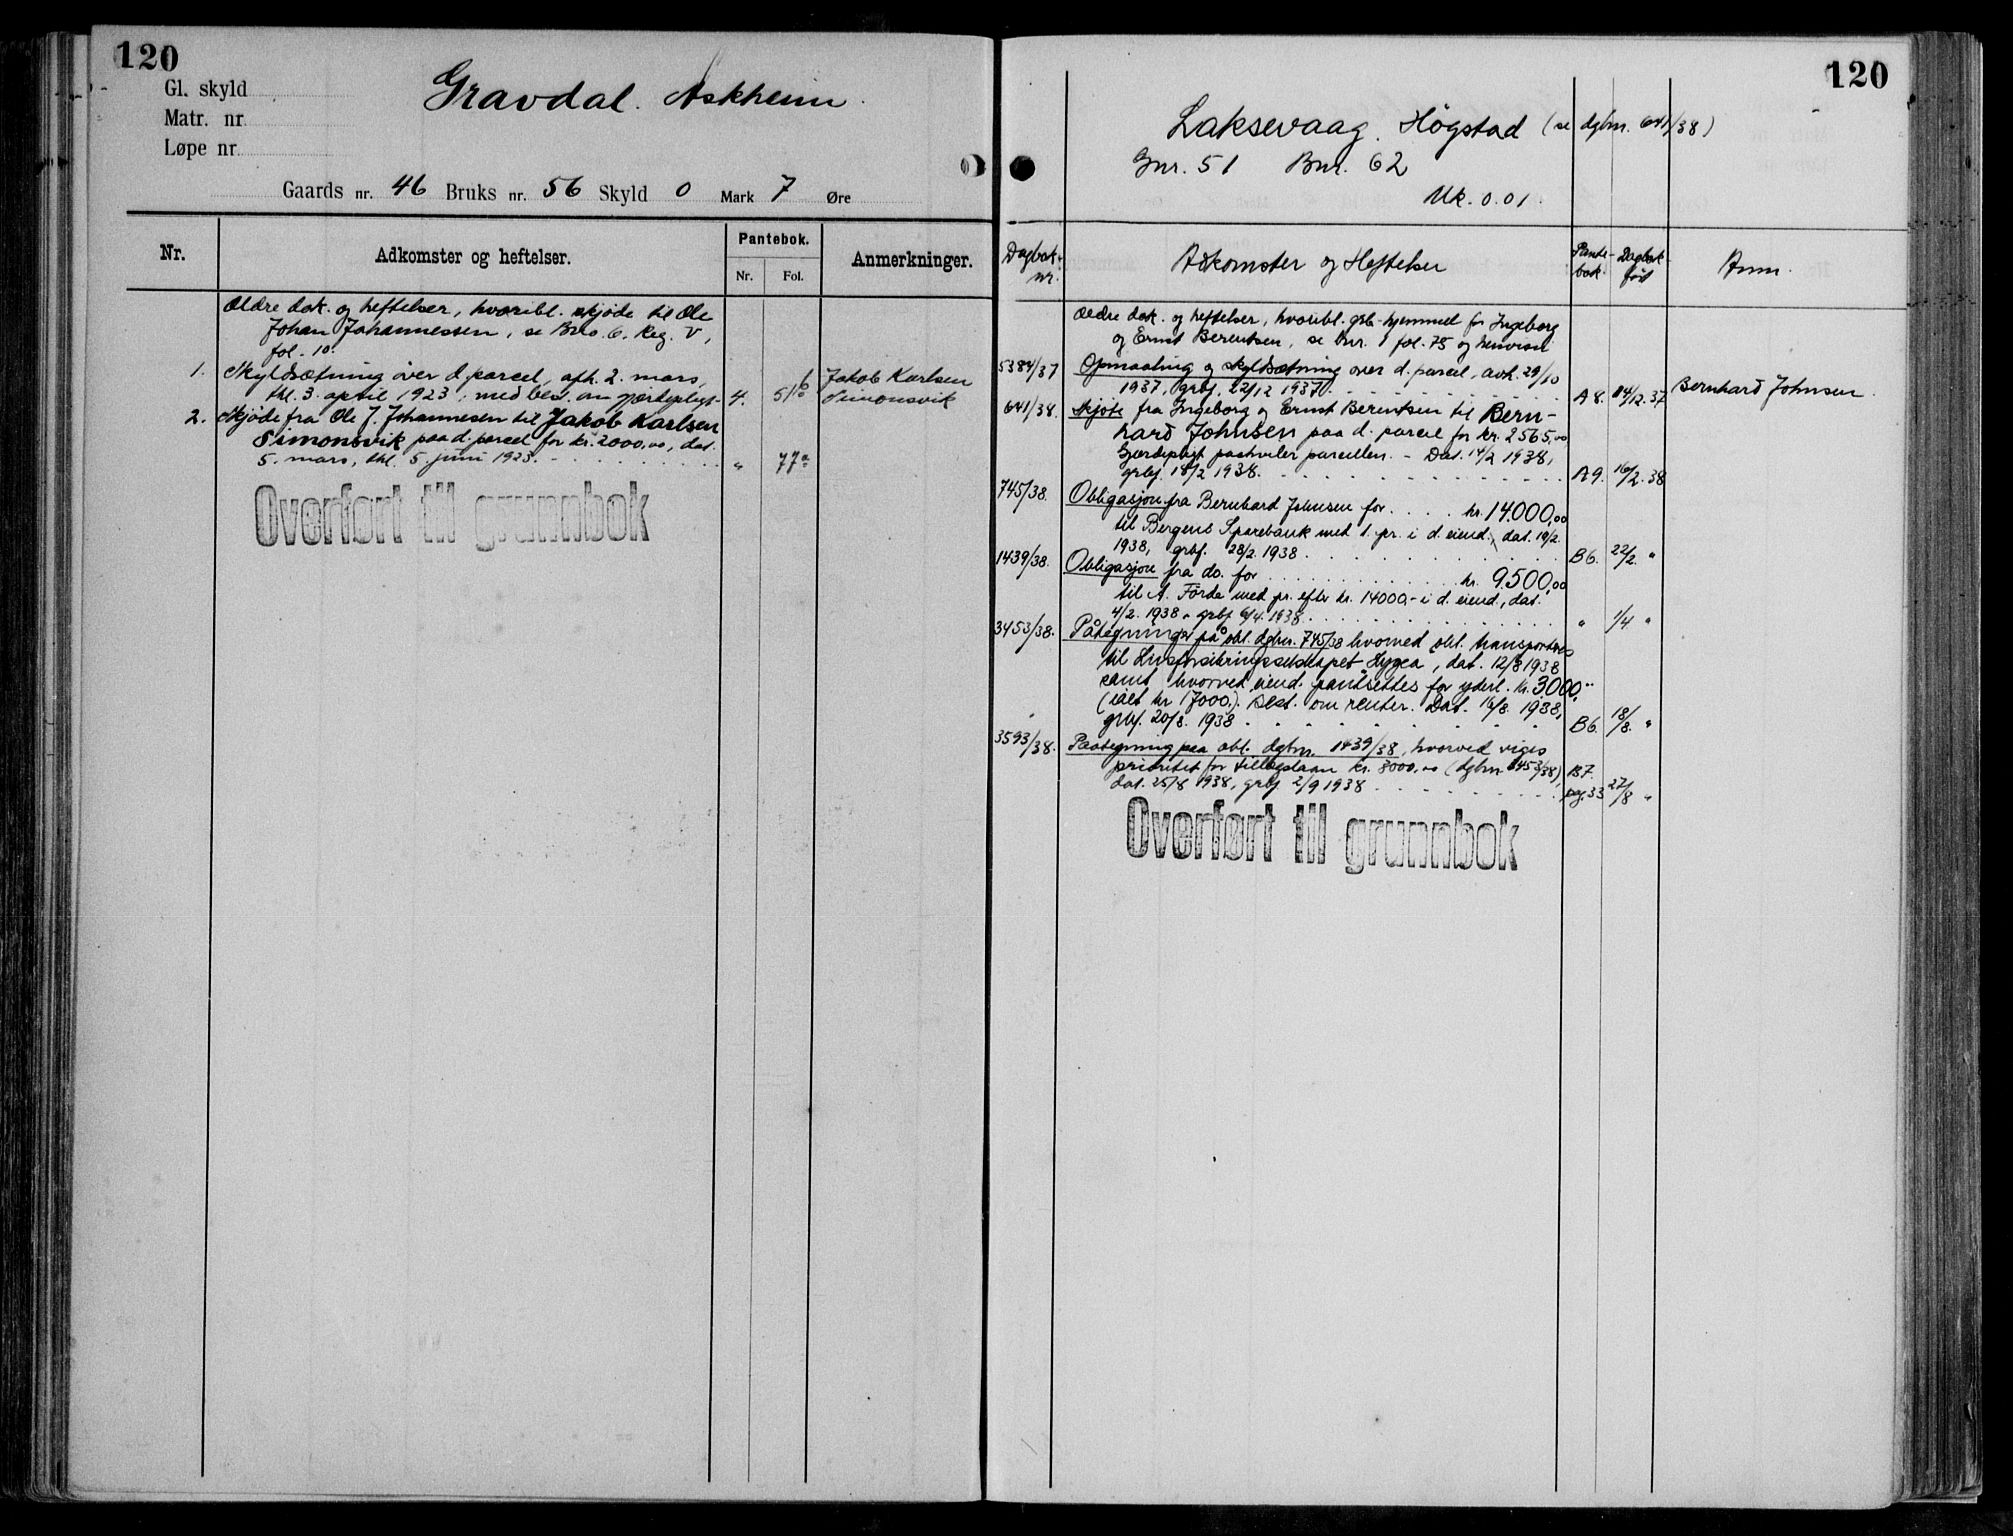 120
Gl. skyld
Matr. nr
Løpe nr
Gravdal. Askheim.
Gaards nr. 46 Bruks nr. 56 Skyld 0 Mark 7 Øre
Nr.
Adkomster og heftelser.
Pantebok.
Nr. Fol.
Anmerkninger.
Ældre dok. og heftelser, hvoribl. skjøde til Ole
Johan Johannessen, se Brs. 6. Reg. V,
fol. 10.
1. Skyldsætning over d. parcel, afh. 2. mars,
thl. 3. april 1923, med bes. om gjerdepligt. 4. 51b Jakob Karlsen
Simonsvik
2. Skjøde fra Ole J. Johannesen til Jakob Karlsen
Simonsvik paa d. parcel for kr. 2000,00, dat.
5. mars, thl. 5. juni 1923. " 77a
Overført til grunnbok
120
Laksevaag. Högstad (se dgbnr. 641/38)
Gnr. 51 Bnr. 62
Mk. 0.01.
Dagbok-
nr.
Adkomster og Heftelser
Pante-
bok.
Dagbok-
ført
Anm.
Ældre dok. og heftelser, hvoribl. grb. hjemmel for Ingeborg
og Ernst Berentsen, se bnr. 1 fol. 75 og henvisn.
5384/37 Opmaaling og skyldsætning over d. parcel, avh. 29/10
1937, grbf. 22/12 1937. A 8. 14/12. 37 Bernhard Johnsen.
641/38. Skjøte fra Ingeborg og Ernst Berentsen til Bern-
hard Johnsen paa d. parcel for kr. 2565,00
Gjerdeplikt paahviler parcellen. - Dat. 14/2 1938,
grbf. 18/2 1938. A 9. 16/2. 38
745/38. Obligasjon fra Bernhard Johnsen for . . . . kr. 14.000,00
til Bergens Sparebank med 1. pr. i d. eiend., dat. 19/2.
1938, grbf. 28/2. 1938 B6. 22/2. "
1439/38. Obligasjon fra do. for kr. 9.500,00
til A. Förde med pr. efter kr. 14000,- i d. eiend., dat.
4/2. 1938 - grbf 6/4. 1938. " 1/4 "
3453/38. Påtegninger på obl. dgbnr. 745/38 hvorved obl. transporteres
til Livsforsikringsselskapet Hygea, dat. 12/8 1938
samt hvorved eiend. pantsettes for yderl. kr. 3000,-
(ialt kr 17000.). Best. om renter. Dat. 16/8. 1938,
grbf. 20/8. 1938 B6. 18/8. "
3593/38. Paategning paa obl. dgbnr. 1439/38, hvorved viges
prioritet for tillægslaan kr. 3000,00 (dgbnr 3453/38), B7.
dat. 25/8 1938, grbf 2/9 1938 pag. 33 27/8 "
Overført til grunnbok